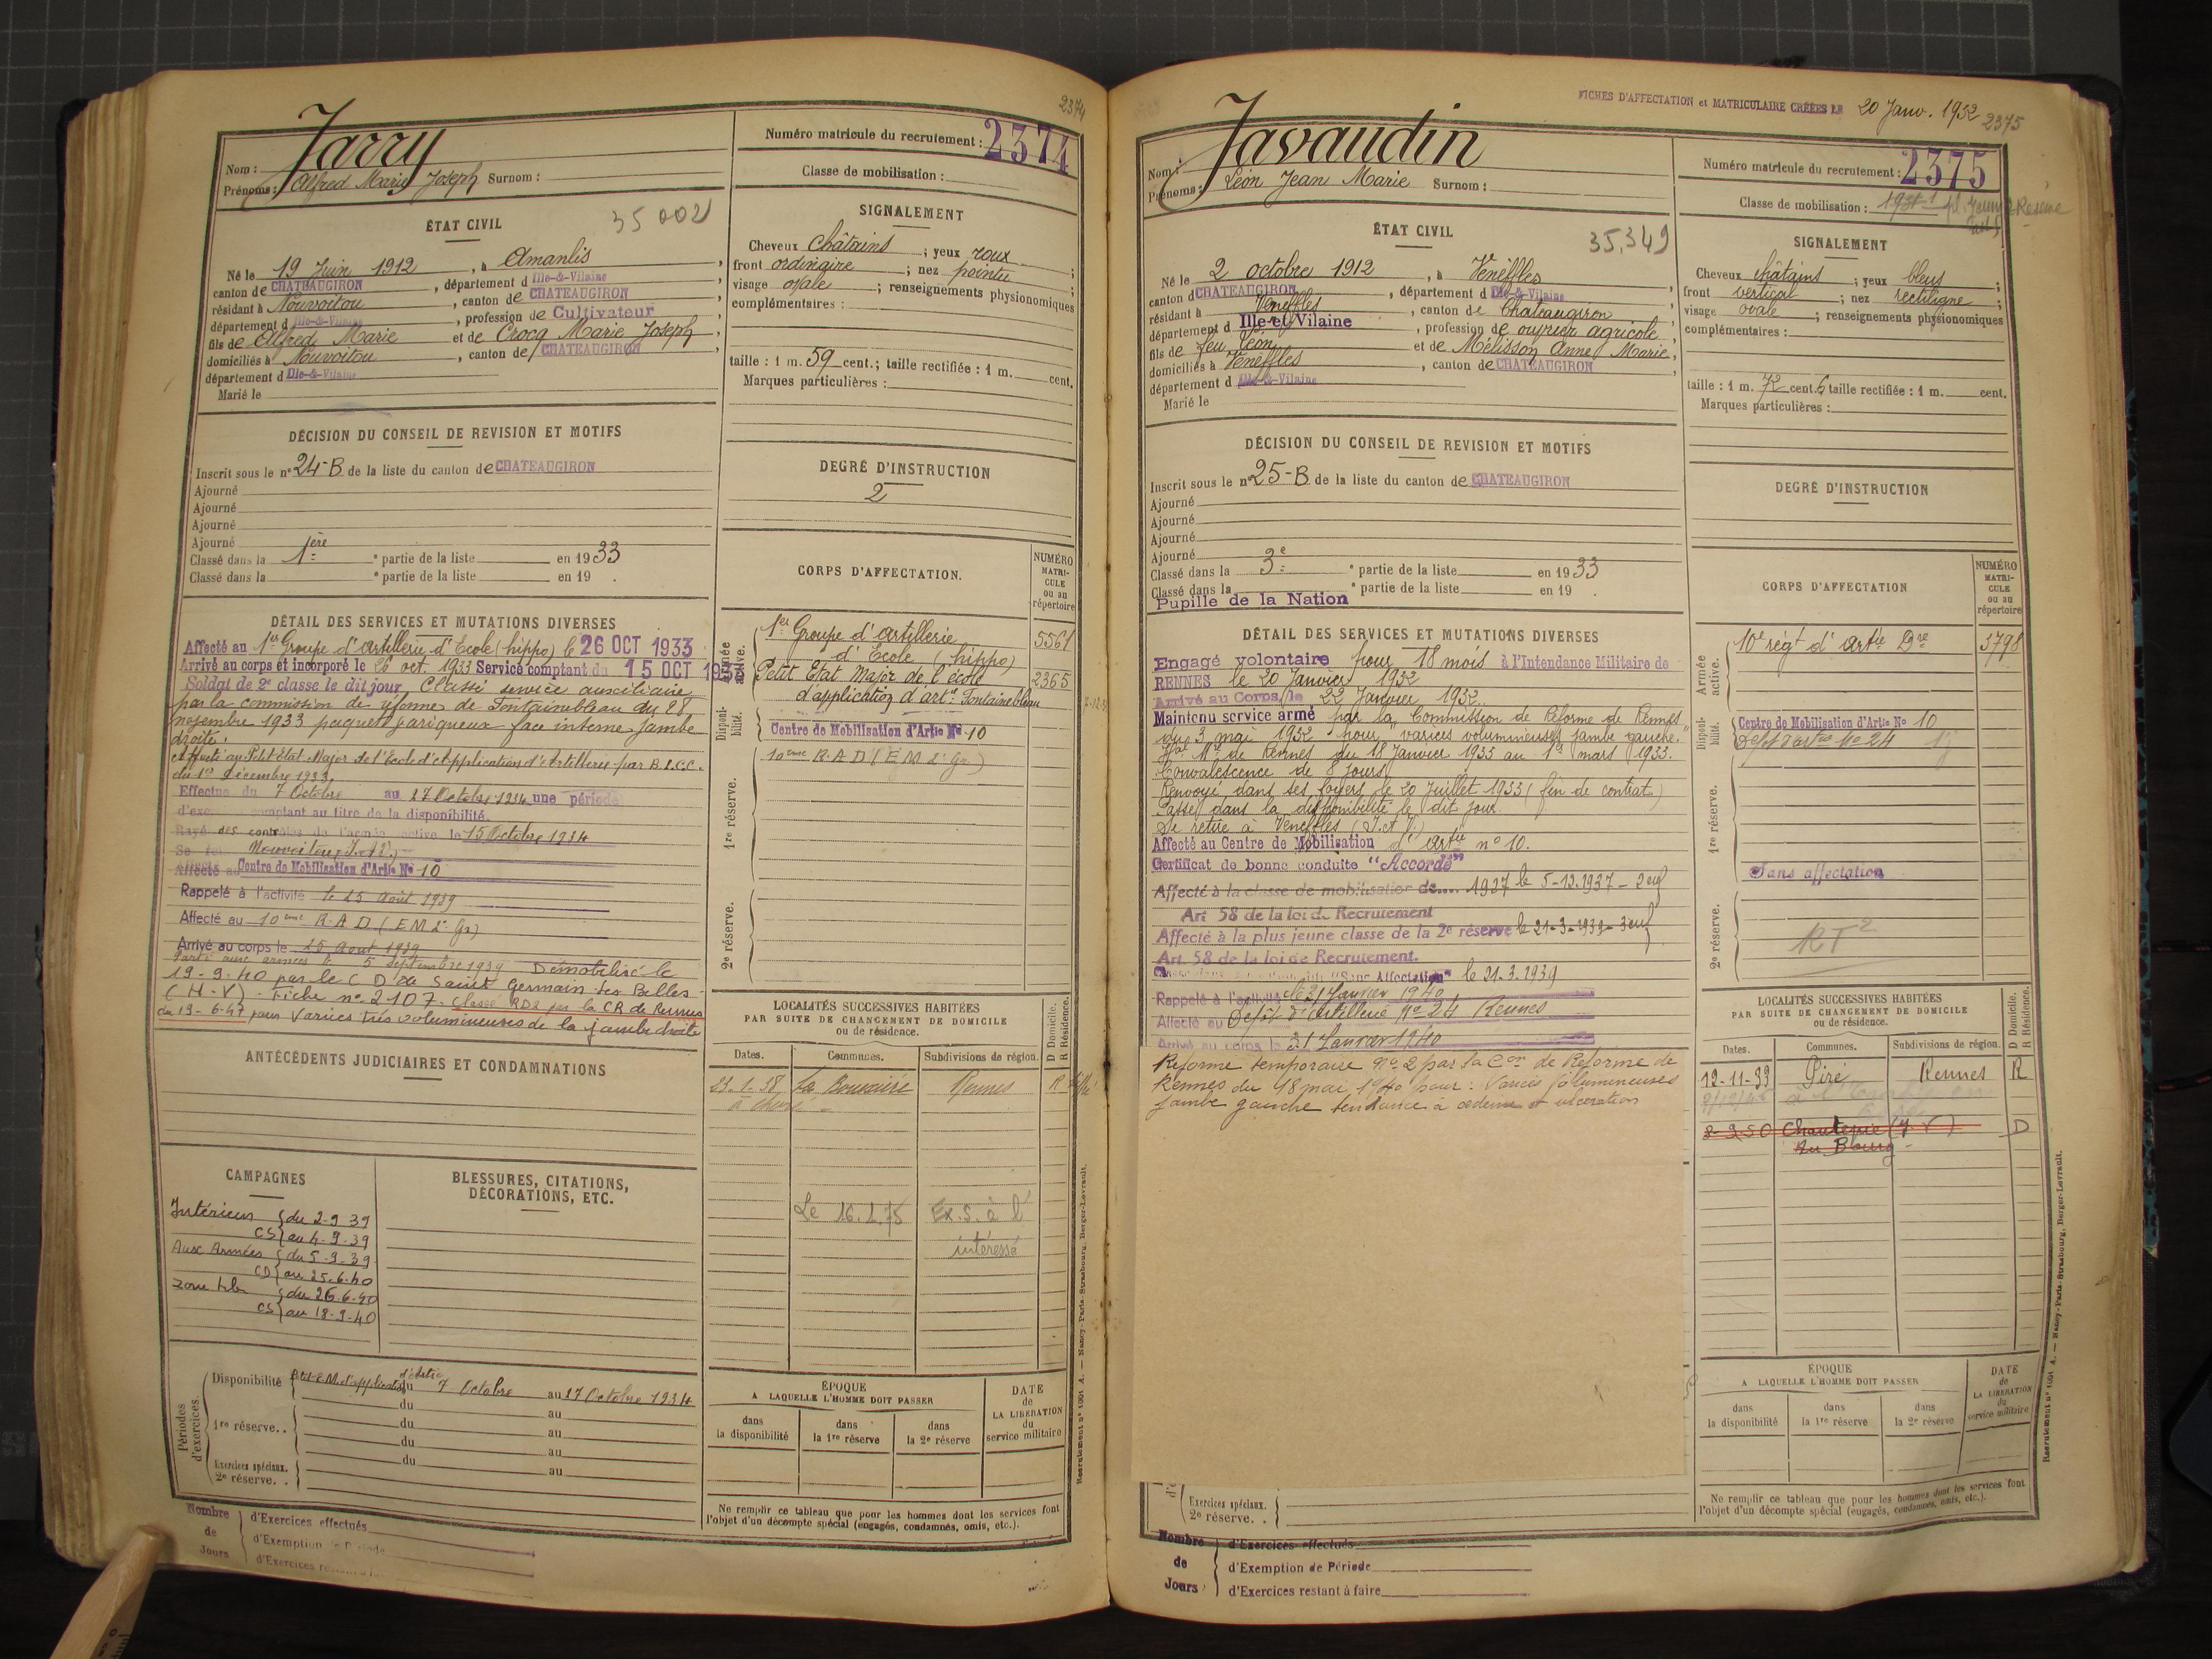 2374
Jarry
Nom :
Prénoms : Alfred Marie Joseph Surnom :
Numéro matricule du recrutement : 2374
Classe de mobilisation :
ÉTAT CIVIL
35002
Né le 19 Juin 1912, à Amanlis,
canton de CHATEAUGIRON, département d Ille-&-Vilaine
résidant à Nouvoitou, canton de CHATEAUGIRON,
département d Ille-&-Vilaine, profession de Cultivateur
fils de Alfred Marie et de Crocq Marie Joseph,
domiciliés à Nouvoitou, canton de CHATEAUGIRON
département d Ille-&-Vilaine
Marié le
SIGNALEMENT
Cheveux châtains ; yeux roux ;
front ordinaire ; nez pointu ;
visage ovale ; renseignements physionomiques
complémentaires :
taille : 1 m. 59 cent.; taille rectifiée : 1 m. cent.
Marques particulières :
DÉCISION DU CONSEIL DE REVISION ET MOTIFS
Inscrit sous le n° 24-B de la liste du canton de CHATEAUGIRON
Ajourné
Ajourné
Ajourné
Ajourné
Classé dans la 1ère partie de la liste en 1933
Classé dans la partie de la liste en 19 .
DEGRÉ D'INSTRUCTION
2
DÉTAIL DES SERVICES ET MUTATIONS DIVERSES
Affecté au 1er Groupe d'Artillerie d'Ecole (hippo) le 26 OCT 1933
Arrivé au corps et incorporé le 26 oct. 1933 Service comptant du 15 OCT 1933
Soldat de 2e classe le dit jour Classé service auxiliaire
par la commission de réforme de Fontainebleau du 28
novembre 1933 paquet variqueux face interne jambe
droite.
Affecté au Petit Etat-Major de l'Ecole d'Application d'Artillerie par B.L.C.C.
du 1er Décembre 1933.
Effectue du 7 Octobre au 27 Octobre 1934 une période
d'exe comptant au titre de la disponibilité.
Rayé des contrôles de l'armée active le 15 Octobre 1934
Se Nouvoitou (I. &V.)
Affecté au Centre de Mobilisation d'Artie N° 10
Rappelé à l'activité le 25 Août 1939
Affecté au 10eme R.A.D (EM 2e Gr)
Arrivé au corps le 25 Aout 1939
Parti aux armées le 5 Septembre 1939 Démobilisé le
19-9-40 par le C D de Saint Germain les Belles
(H-V). Fiche n° 2107. Classé RD2 par la CR de Rennes
du 19-6-47 pour Varices très volumineuses de la jambe droite
CORPS D'AFFECTATION.
NUMÉRO MATRICULE ou au répertoire
Armée active.
1er Groupe d'Artillerie 5561
d'Ecole (hippo)
Petit Etat Major de l'école 2365
d'application d'artie Fontainebleau
Disponibilité.
Centre de Mobilisation d'Artie N° 10
1re réserve.
10eme R.A.D (EM 2e Gr)
2e réserve.
ANTÉCÉDENTS JUDICIAIRES ET CONDAMNATIONS
CAMPAGNES
Intérieur du 2-9-39
CS au 4-9-39
Aux Armées du 5-9-39
CD au 25-6-40
zone lib du 26-6-40
CS au 18-9-40
BLESSURES, CITATIONS, DÉCORATIONS, ETC.
LOCALITÉS SUCCESSIVES HABITÉES
PAR SUITE DE CHANGEMENT DE DOMICILE
ou de résidence.
D Domicile. R Résidence.
Dates. Communes. Subdivisions de région.
23-1-38 La Rennes R
Le 16.1.75 Ex. S. à l'
intéressé
Périodes d'exercices
Disponibilité du 7 Octobre au 27 Octobre 1934
du au
1re réserve.. du au
du au
du au
Exercices spéciaux.
2e réserve. . au
ÉPOQUE
A LAQUELLE L'HOMME DOIT PASSER
dans la disponibilité
dans la 1re réserve
dans la 2e réserve
DATE de LA LIBÉRATION du service militaire
Ne remplir ce tableau que pour les hommes dont les services font
l'objet d'un décompte spécial (engagés, condamnés, omis, etc.).
Nombre de Jours
d'Exercices effectués
d'Exemption de Période
d'Exercices restant à faire
Recrutement n° 1001 A. — Nancy-Paris-Strasbourg, Berger-Levrault.
FICHES D'AFFECTATION et MATRICULAIRE CRÉÉES LE 20 Janv. 1932
2375
Javaudin
Nom :
Prénoms : Léon Jean Marie Surnom :
Numéro matricule du recrutement : 2375
Classe de mobilisation :
ÉTAT CIVIL
35.349
Né le 2 octobre 1912, à Venèffles,
canton d CHATEAUGIRON, département d Ille-&-Vilaine
résidant à Venèffles, canton de Chateaugiron,
département d Ille-et-Vilaine, profession de ouvrier agricole,
fils de feu Léon et de Mélisson Anne Marie,
domiciliés à Venèffles, canton de CHATEAUGIRON
département d Ille-&-Vilaine
Marié le
SIGNALEMENT
Cheveux châtains ; yeux bleus ;
front vertical ; nez rectiligne ;
visage ovale ; renseignements physionomiques
complémentaires :
taille : 1 m. 72 cent. 6 taille rectifiée : 1 m. cent.
Marques particulières :
DÉCISION DU CONSEIL DE REVISION ET MOTIFS
Inscrit sous le n° 25-B de la liste du canton de CHATEAUGIRON
Ajourné
Ajourné
Ajourné
Ajourné
Classé dans la 3e partie de la liste en 1933
Classé dans la partie de la liste en 19 .
Pupille de la Nation
DEGRÉ D'INSTRUCTION
DÉTAIL DES SERVICES ET MUTATIONS DIVERSES
Engagé volontaire pour 18 mois à l'Intendance Militaire de
RENNES le 20 Janvier 1932
Arrivé au Corps le 22 Janvier 1932.
Maintenu service armé par la Commission de Réforme de Rennes
du 3 mai 1932 pour "varices volumineuses jambe gauche."
Hal Mre de Rennes du 18 Janvier 1933 au 1er mars 1933.
Convalescence de 8 jours
Renvoyé dans ses foyers le 20 Juillet 1933 (fin de contrat)
Passé dans la disponibilité le dit jour.
Se retire à Venèffles (I. et V.)
Affecté au Centre de Mobilisation d'Artie n° 10.
Certificat de bonne conduite "Accordé"
Affecté à la classe de mobilisation de 1927 le 5-12.1937 - 2 enf
Art 58 de la loi de Recrutement
Affecté à la plus jeune classe de la 2e réserve le 21-3-1939 - 3 enf
Art. 58 de la loi de Recrutement.
"Sans Affectation" le 21.3.1939
Rappelé à l'activité le 21 Janvier 1940
Affecté au Dépôt d'Artillerie No 24 Rennes
Arrivé au corps le 21 Janvier 1940
Réforme temporaire No 2 par la Con de Réforme de
Rennes du 18 mai 1940 pour : Varices volumineuses
jambe gauche tendance à œdème et ulcération
CORPS D'AFFECTATION
NUMÉRO MATRICULE ou au répertoire
Armée active.
10e régt d'Artie Dre 3798
Disponibilité.
Centre de Mobilisation d'Artie N° 10
Dépot d'artie No 24
1re réserve.
Sans affectation
2e réserve.
RT2
LOCALITÉS SUCCESSIVES HABITÉES
PAR SUITE DE CHANGEMENT DE DOMICILE
ou de résidence.
D Domicile. R Résidence.
Dates. Communes. Subdivisions de région.
12-11-33 Piré Rennes R
8-9-50 Chantepie (I V) D
Au Bourg
ÉPOQUE
A LAQUELLE L'HOMME DOIT PASSER
dans la disponibilité
dans la 1re réserve
dans la 2e réserve
DATE de LA LIBÉRATION du service militaire
Ne remplir ce tableau que pour les hommes dont les services font
l'objet d'un décompte spécial (engagés, condamnés, omis, etc.).
Exercices spéciaux.
2e réserve. .
Nombre de Jours
d'Exercices effectués
d'Exemption de Période
d'Exercices restant à faire
Recrutement n° 1001 A. — Nancy-Paris-Strasbourg, Berger-Levrault.